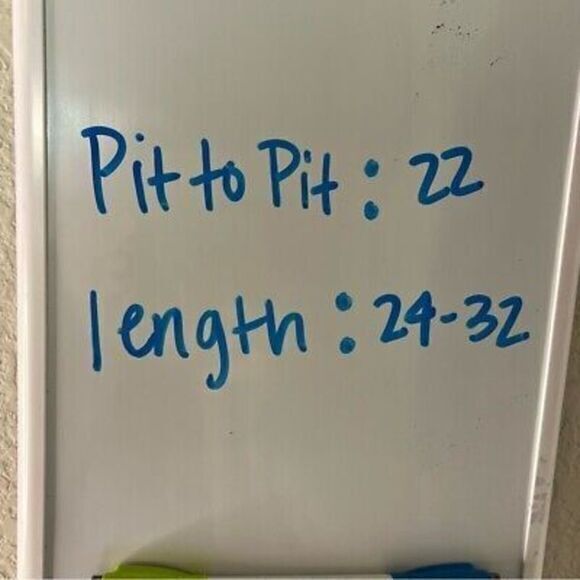 Pit to Pit : 22
length : 24-32